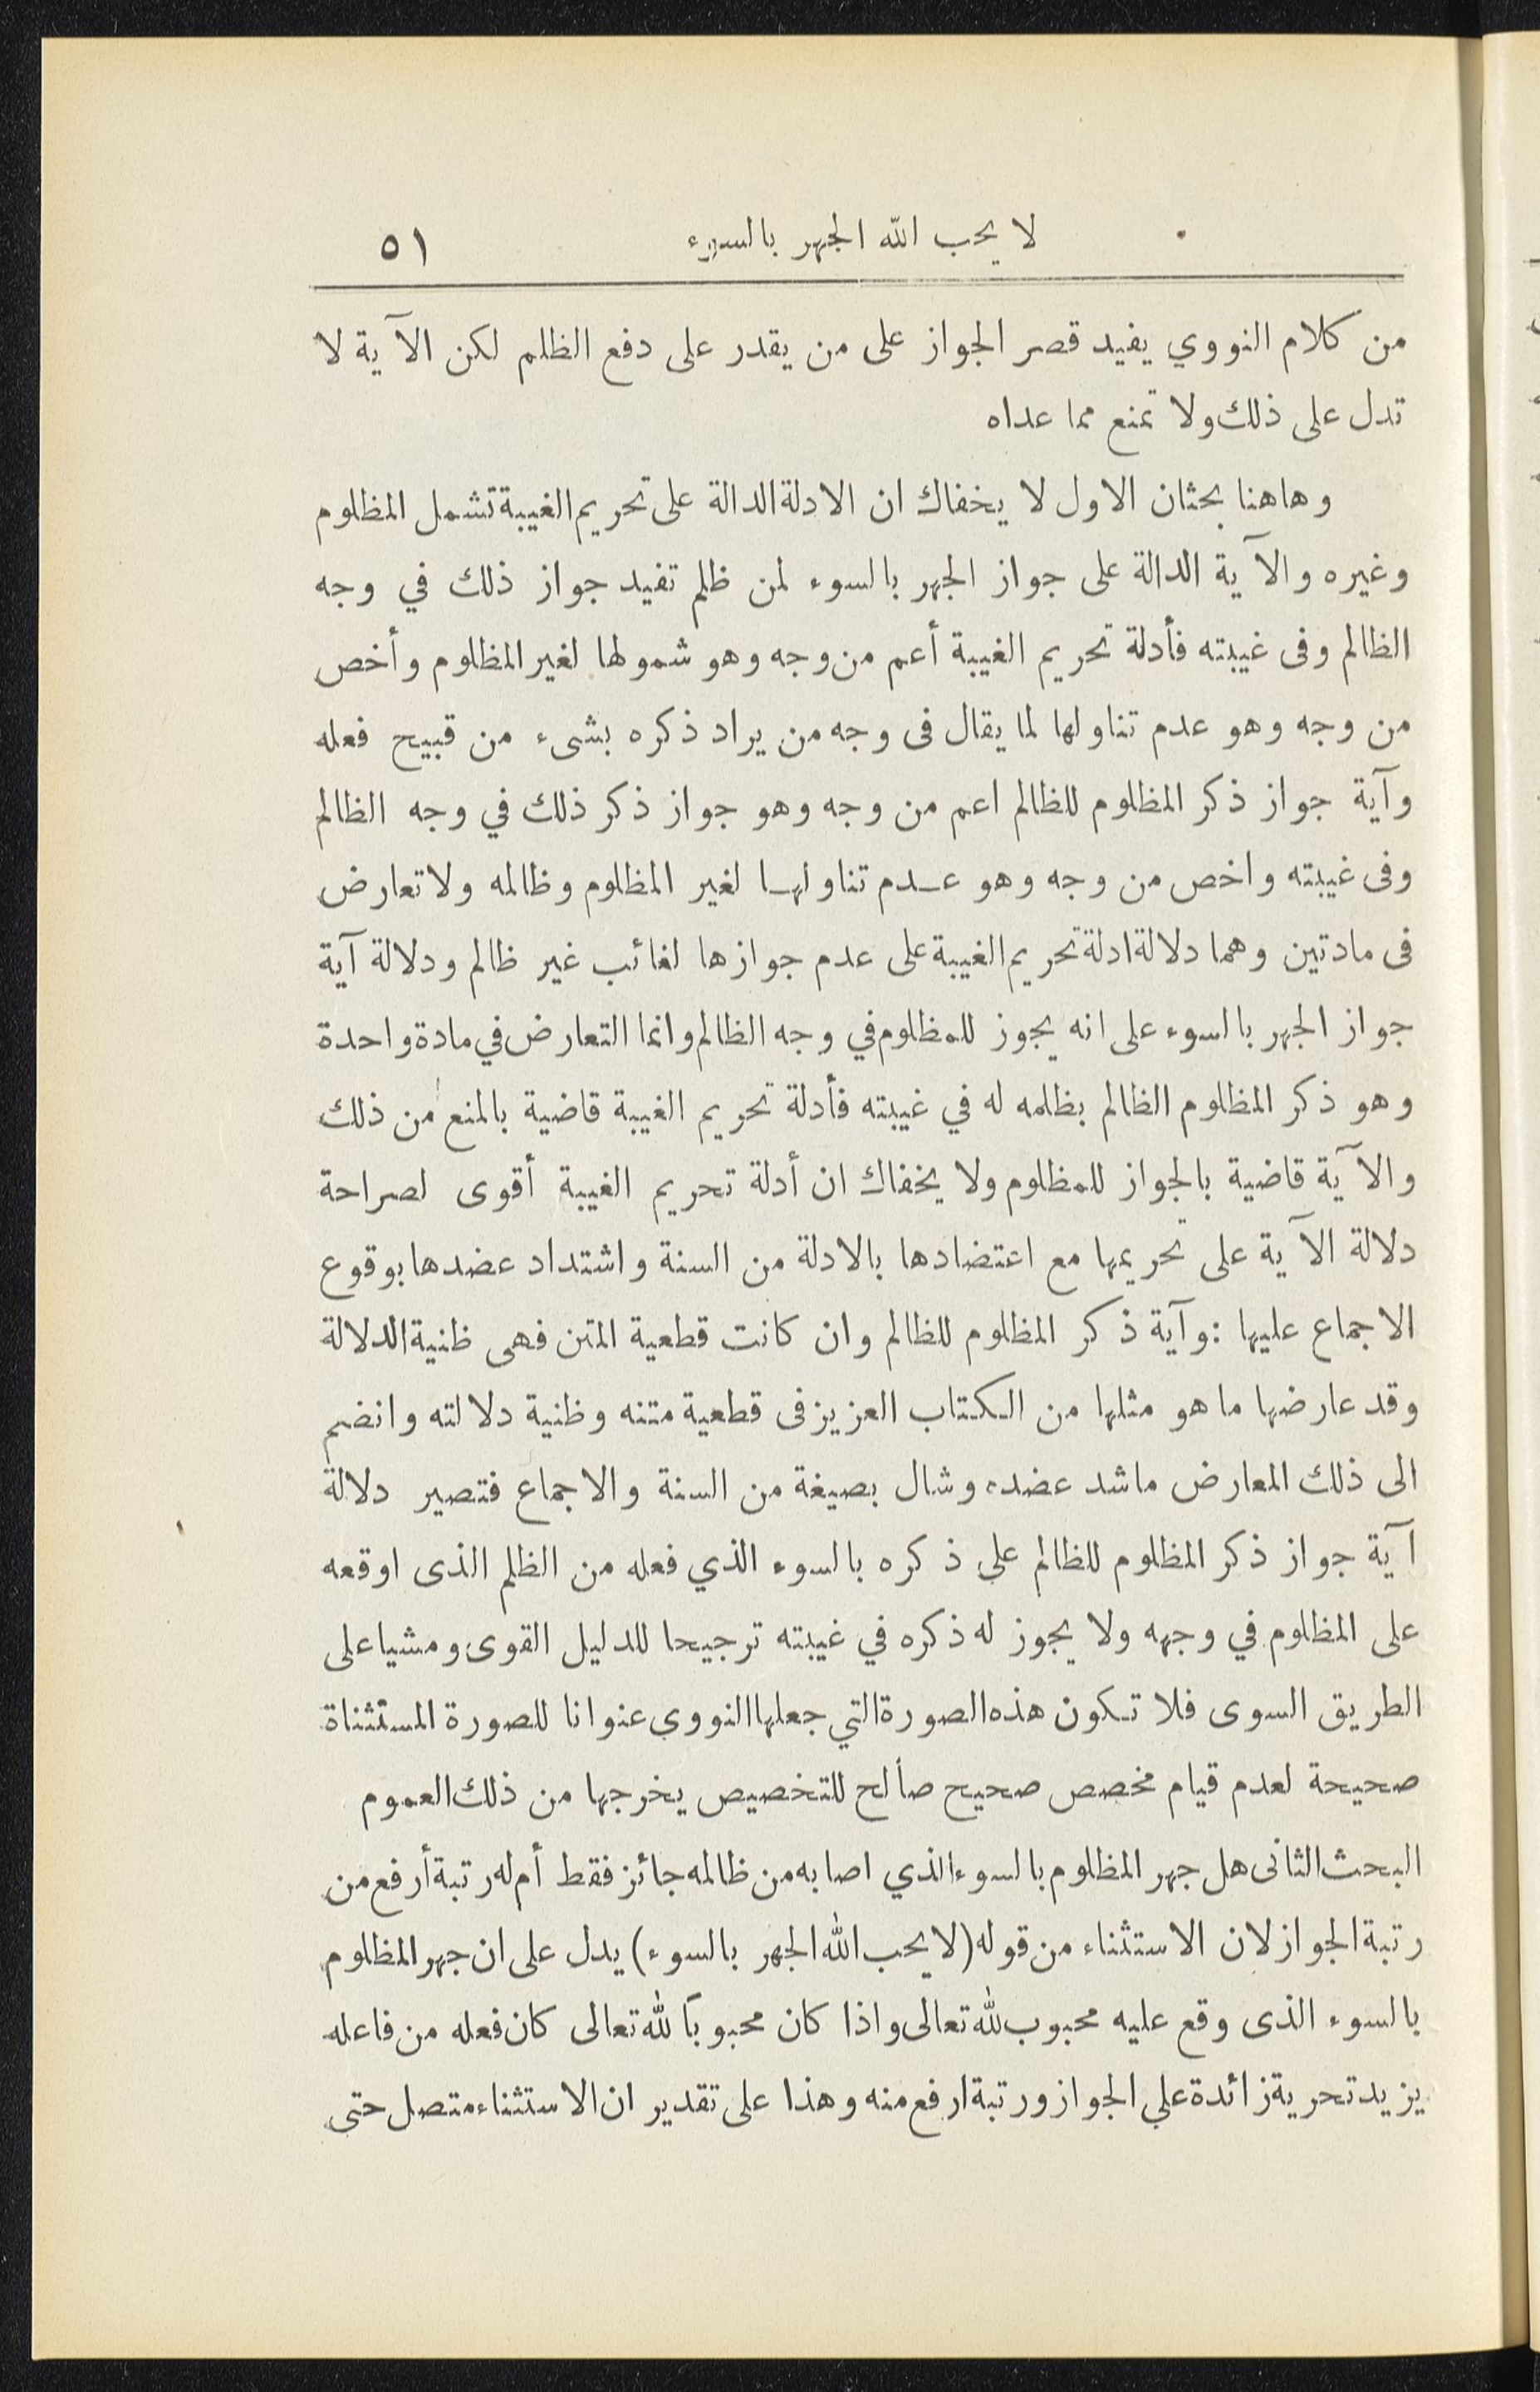 لا يحب الله الجهر بالسوء ٥١
من كلام النووي يفيد قصر الجواز على من يقدر على دفع الظلم لكن الآية لا
تدل على ذلك ولا تمنع مما عداه
وهاهنا بحثان الاول لا يخفاك ان الادلة الدالة على تحريم الغيبة تشمل المظلوم
وغيره والآية الدالة على جواز الجهر بالسوء لمن ظلم تفيد جواز ذلك في وجه
الظالم وفى غيبته فأدلة تحريم الغيبة أعم من وجه وهو شمولها لغير المظلوم وأخص
من وجه وهو عدم تناولها لما يقال فى وجه من يراد ذكره بشىء من قبيح فعله
وآية جواز ذكر المظلوم للظالم اعم من وجه وهو جواز ذكر ذلك في وجه الظالم
وفى غيبته واخص من وجه وهو عـدم تناولهـا لغير المظلوم وظالمه ولا تعارض
فى مادتين وهما دلالة ادلة تحريم الغيبة على عدم جوازها لغائب غير ظالم ودلالة آية
جواز الجهر بالسوء على انه يجوز للمظلوم في وجه الظالم وانما التعارض في مادة واحدة
وهو ذكر المظلوم الظالم بظلمه له في غيبته فأدلة تحريم الغيبة قاضية بالمنع من ذلك
والآية قاضية بالجواز للمظلوم ولا يخفاك ان أدلة تحريم الغيبة أقوى لصراحة
دلالة الآية على تحريمها مع اعتضادها بالادلة من السنة واشتداد عضدها بوقوع
الاجماع عليها : وآية ذكر المظلوم للظالم وان كانت قطعية المتن فهى ظنية الدلالة
وقد عارضها ما هو مثلها من الـكـتاب العزيز فى قطعية متنه وظنية دلالته وانضم
الى ذلك المعارض ماشد عضده وشال بصيغة من السنة والاجماع فتصير دلالة
آية جواز ذكر المظلوم للظالم على ذكره بالسوء الذي فعله من الظلم الذى اوقعه
على المظلوم في وجهه ولا يجوز له ذكره في غيبته ترجيحا للدليل القوى ومشيا على
الطريق السوى فلا تـكون هذه الصورة التي جعلها النووي عنوانا للصورة المستثناة
صحيحة لعدم قيام مخصص صحيح صالح للتخصيص يخرجها من ذلك العموم
البحث الثانى هل جهر المظلوم بالسوء الذي اصابه من ظالمه جائز فقط أم له رتبة أرفع من
رتبة الجواز لان الاستثناء من قوله (لا يحب الله الجهر بالسوء) يدل على ان جهر المظلوم
بالسوء الذى وقع عليه محبوب لله تعالى واذا كان محبوباً لله تعالى كان فعله من فاعله
يزيد تحرية زائدة على الجواز ورتبة ارفع منه وهذا على تقدير ان الاستثناء متصل حتى